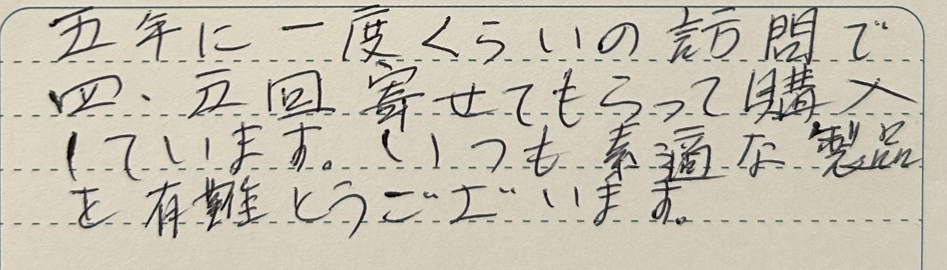 五年に一度くらいの訪問で
四、五回寄せてもらって購入
しています。いつも素適な製品
を有難とうございます。